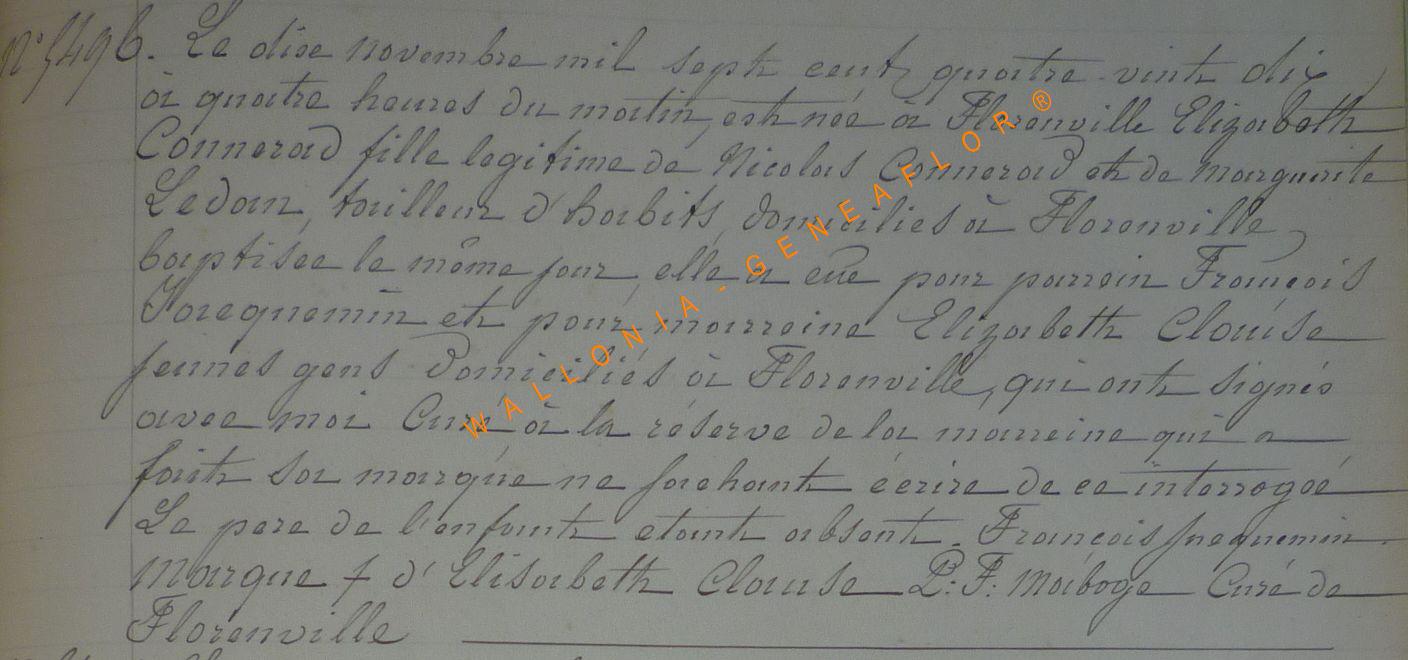 N° 5496. Le dise novembre mil sept cent quatre vint dix
à quatre heures du matin, est née à Florenville Elizabeth
Connerad fille legitime de Nicolas Connerad et de marguerite
Ledan, tailleur d'habits, domiciliés à Florenville,
baptisée le même jour, elle a eue pour parrein François
Jacquemin et pour marreine Elizabeth Clause
jeunes gens domiciliés à Florenville, qui ont signés
avec moi Curé à la réserve de la marreine qui a
fait sa marque ne sachant écrire de ce interrogée
Le pere de l'enfant etant absent. François Jacquemin.
Marque † d'Elisabeth Clause P. F. Maboge Curé de
Florenville
WALLONIA - GENEAFLOR ®